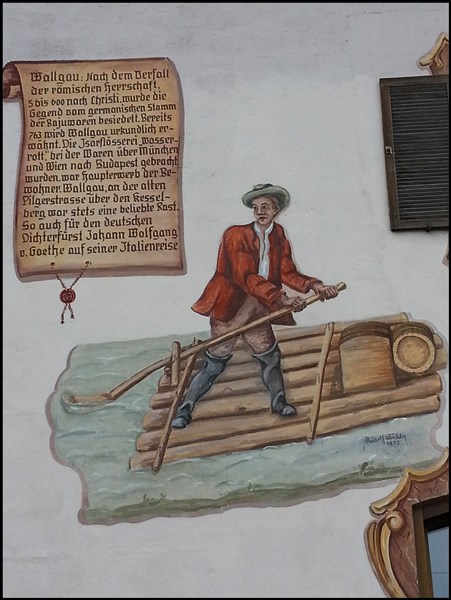 Wallgau: Nach dem Verfall
der römischen Herrschaft,
5 bis 600 nach Christi, wurde die
Gegend vom germanischen Stamm
der Bajuwaren besiedelt. Bereits
763 wird Wallgau urkundlich er-
wähnt. Die Isarflösserei „Wasser-
rott", bei der Waren über München
und Wien nach Budapest gebracht
wurden, war Haupterwerb der Be-
wohner. Wallgau, an der alten
Pilgerstrasse über den Kessel-
berg war stets eine beliebte Rast.
So auch für den deutschen
Dichterfürst Johann Wolfgang
v. Goethe auf seiner Italienreise